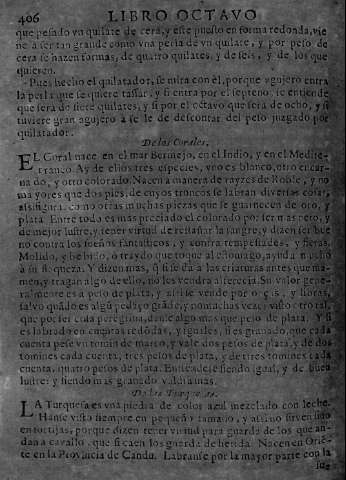 406 LIBRO OCTAVO
que pesado vn quilate de cera, y este puesto en forma redonda, vie
ne a ser tan grande como vna perla de vn quilate, y por peso de
cera se hazen formas, de quatro quilates, y de seis, y de los que
quieren.
Pues hecho el quilatador, se mira con èl, porque agujero entra
la perla que se quiere tassar, y si entra por el septeno, se entiende
que serà de siete quilates, y si por el octavo que serà de ocho, y si
tuviere gran agujero a se le de descontar del peso juzgado por
quilatador.
De los Corales.
EL Coral nace en el mar Bermejo, en el Indio, y en el Medite-
rraneo. Ay de ellos tres especies, vno es blanco, otro encar-
nado, y otro colorado. Nacen a manera de rayzes de Roble, y no
mayores que dos pies, de cuyos troncos se labran diversas cosas,
assi figuras como otras muchas piezas que se guarnecen de oro, y
plata. Entre todo es mas preciado el colorado por ser mas
de mejor lustre, y tener virtud de restañar la sangre, y dizen ser bue
no contra los sueños fantasticos, y contra tempestades, y fieras.
Molido, y bebido, ò traydo que toque al estomago, ayuda mucho
à su flaqueza. Y dizen mas, q̃ si se dà a las criaturas antes que ma-
men, y tragan algo de ello, no les vendrà alferecia. Su valor gene-
ralmente es a peso de plata, y assi se vende por onças, y libras,
salvo quando es algũ pedaço grãde, y nunca has visto otro tal,
que por ser cosa peregrina, danle algo mas que peso de plata. Y si
es labrado en cuentas redõdas, y iguales, si es granado, que cada
cuenta pese vn tomin de marco, y vale dos pesos de plata, y de dos
tomines cada cuenta, tres pesos de plata, y de tres tomines cada
cuenta, quatro pesos de plata. Entiendese siendo igual, y de buen
lustre: y siendo mas granado valdrà mas.
De las Turquesas.
LA Turquesa es vna piedra de color azul mezclado con leche.
Hanse visto siempre en pequeño tamaño, y assi no sirven sino
en sortijas, porque dizen tener virtud para guarda de los que an-
dan a cavallo, que si caen los guarda de herida. Nacen en Oriē-
te en la Provincia de Candu. Labranse por la mayor parte con la
sue